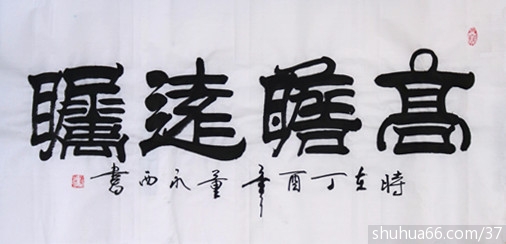 高瞻远瞩
時在丁酉年董永西書
shuhua66.com/37